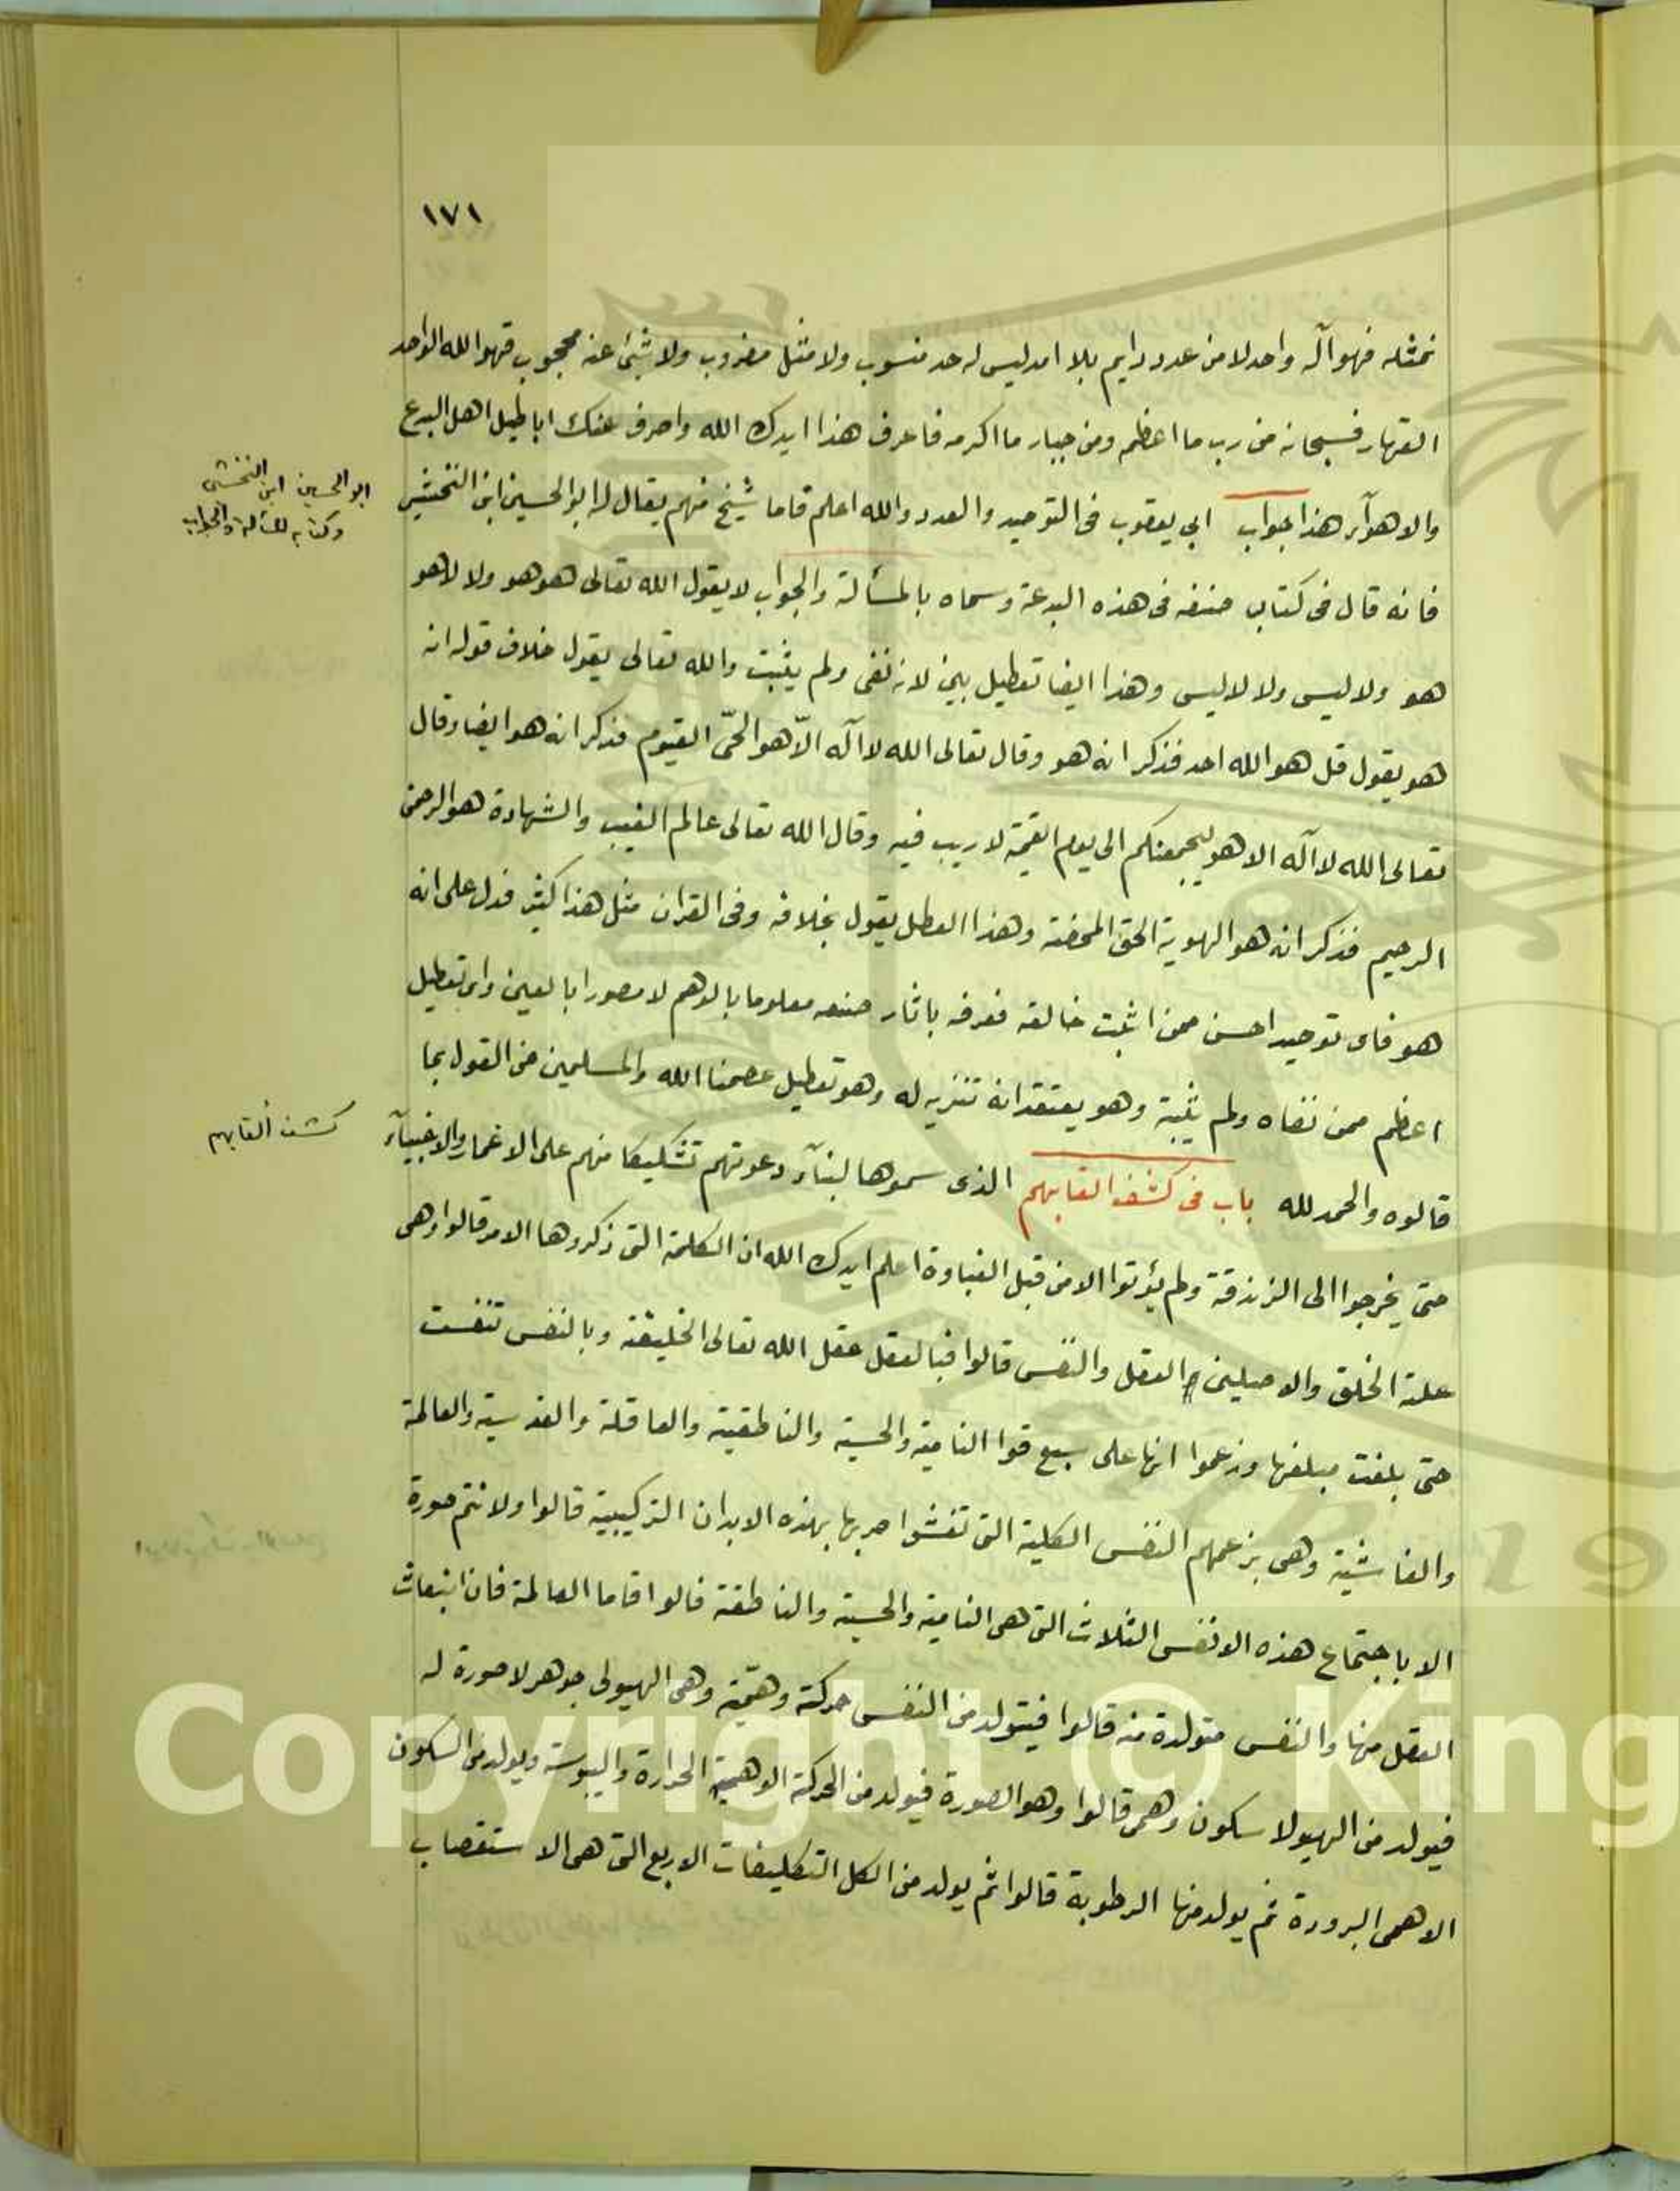 ١٧١
نمثله فهو آله واحد لا من عدد دايم بلا امد ليس له حد منسوب ولا مثل مضروب ولا شئ عنه محجوب فهو الله الواحد
القهار فسبحانه من رب ما اعظم ومن جبار ما اكرمه فاعرف هذا ايدك الله واصرف عنك اباطيل اهل البدع
والاهوآء هذا جواب ابي يعقوب فى التوحيد والعدد والله اعلم فاما شيخ منهم يقال له ابو الحسين ابن النخشبى
ابو الحسين ابن النخشبى
وكتابه المسألة والجواب
فانه قال فى كتاب صنفه فى هذه البدعة وسماه بالمسألة والجواب لا يقول الله تعالى هو هو ولا لا هو
هو ولا ليس ولا لا ليس وهذا ايضا تعطيل بين لانه نفى ولم يثبت والله تعالى يقول خلاف قوله انه
هو يقول قل هو الله احد فذكر انه هو وقال تعالى الله لا آله الّا هو الحىّ القيوم فذكر انه هو ايضا وقال
تعالى الله لا آله الا هو ليجمعنكم الى يوم القيمة لا ريب فيه وقال الله تعالى عالم الغيب والشهادة هو الرحمن
الرحيم فذكر انه هو الهوية الحق المحضة وهذا المعطل يقول بخلافه وفى القران مثل هذا كثير فدل على انه
هو فاى توحيد احسن ممن اثبت خالقه فعرفه باثار صنعه معلوما بالوهم لا مصورا بالعين واى تعطيل
اعظم ممن نفاه ولم يثبة وهو يعتقد انه تنزيه له وهو تعطيل عصمنا الله والمسلمين من القول بما
قالوه والحمد لله باب فى كشف القابهم الذى سموها لبنآء دعوتهم تشكيكا منهم على الاغمار والاغبيآء
كشف ألقابهم
حتى يخرجوا الى الزندقة ولم يؤتوا الا من قبل الغباوة اعلم ايدك الله ان الكلمة التى ذكروها الامر قالوا وهى
علة الخلق والاصيلين العقل والنفس قالوا فبالعقل عقل الله تعالى الخليقة وبالنفس تنفست
حتى بلغت مبلغها وزعموا انها على سبع قوا النامية والحسية والناطقية والعاقلة والقدسية والعالمة
والغاشية وهى بزعمهم النفس الكلية التى تغشوا صربها بهذه الابدان التركيبية قالوا ولا نتم صورة
الا باجتماع هذه الانفس الثلاث التى هى النامية والحسية والناطقة قالوا فاما العالمة فان انبعاث
العقل منها والنفس متولدة منه قالوا فيتولد من النفس حركة وهميّة وهى الهيولى جوهر لا صورة له
فيولد من الهيولا سكون وهمى قالوا وهو الصورة فيولد من الحركة الوهمية الحرارة واليبوسة ويولد من السكون
الاهمى البرودة ثم يولد منها الرطوبة قالوا ثم يولد من الكل التكليفات الاربع التى هى الاستقصاب